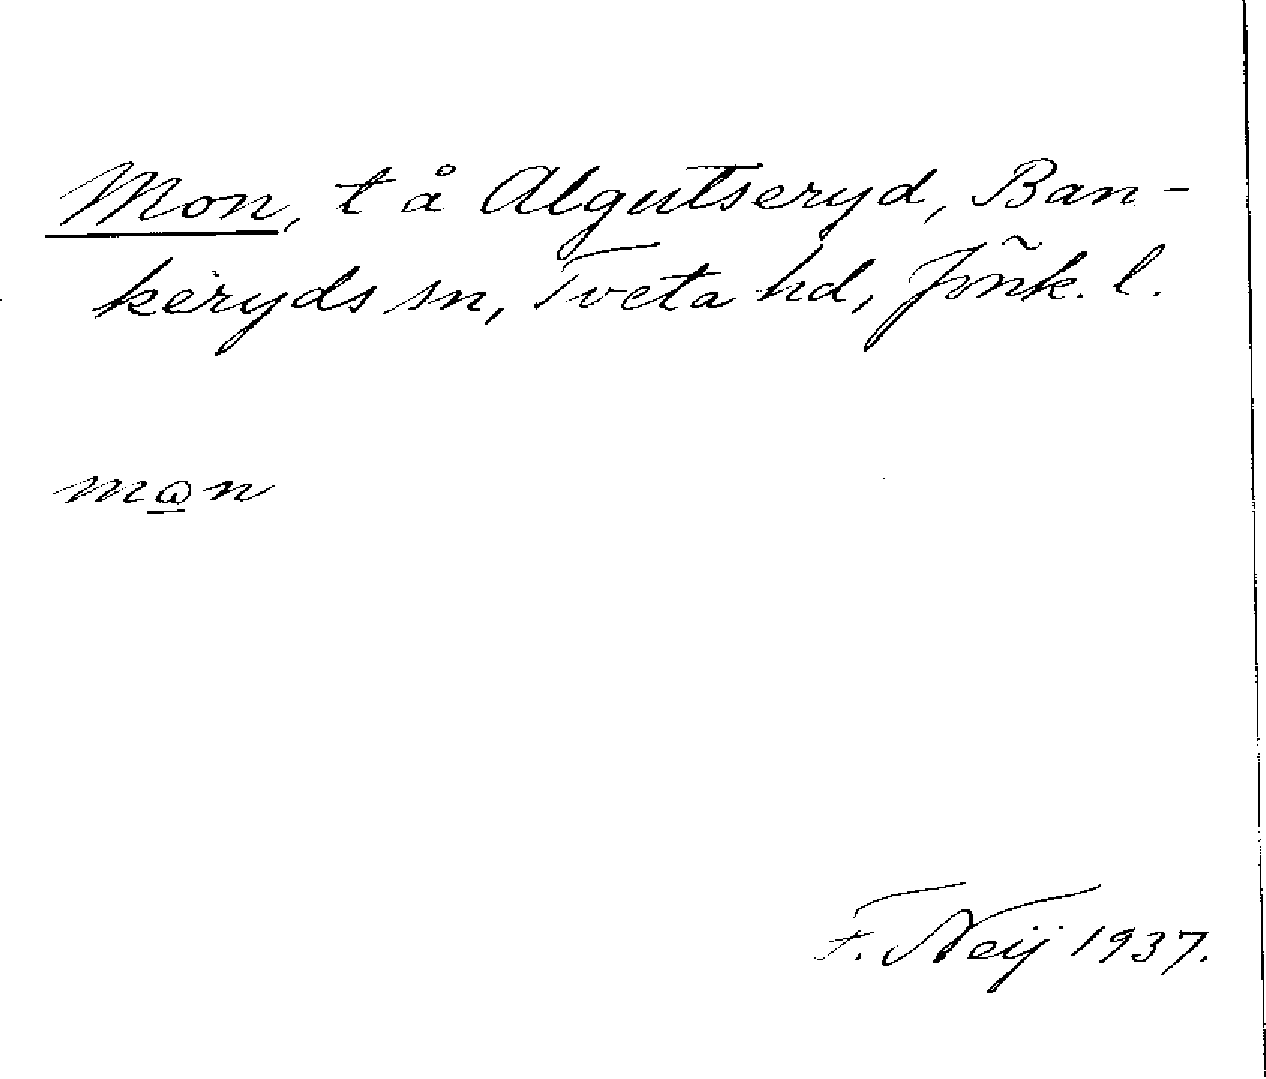 Mon, t å Algutseryd, Ban-
keryds sn, Tveta hd, Jönk. l.
mωn
F. Neij 1937.